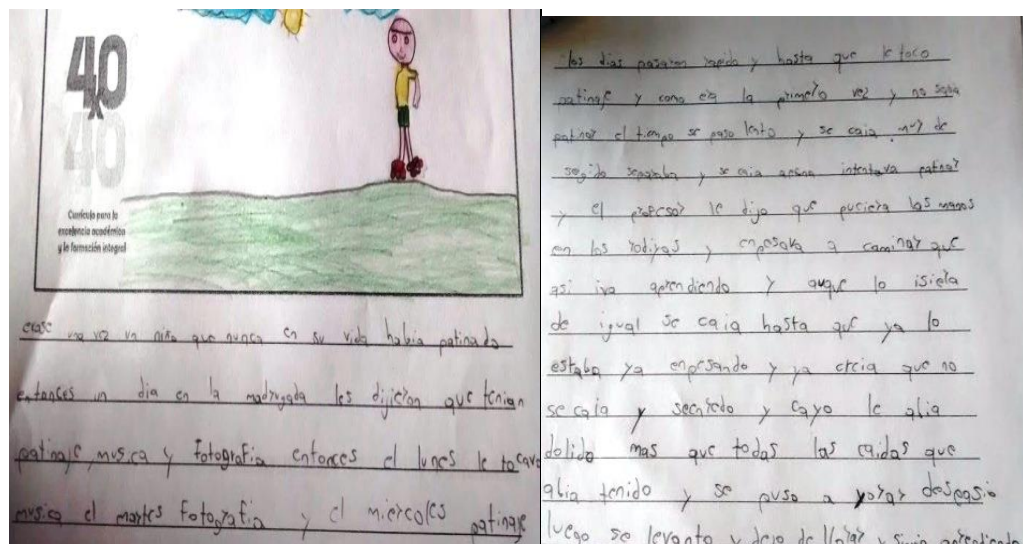 40
x
40
Currículo para la
excelencia académica
y la formación integral
erase una vez un niño que nunca en su vida habia patinado
entonces un dia en la madrugada les dijieron que tenian
patinaje, musica y fotografia entonces el lunes le tocava
musica el martes fotografia y el miercoles patinaje
los dias pasaron rapido y hasta que le toco
patinaje y como era la primera vez y no sabia
patinar el tiempo se paso lento y se caia muy de
segido separaba y se caia intentava patinar
y el profesor le dijo que pusiera las manos
en las rodiyas y enpesara a caminar que
asi iva aprendiendo y auque lo isiera
de igual se caia hasta que ya lo
estaba ya enpesando y ya creia que no
se caia y y cayo le abia
dolido mas que todas las caidas que
abia tenido y se puso a yorar
luego se levanto y dejo de llorar y